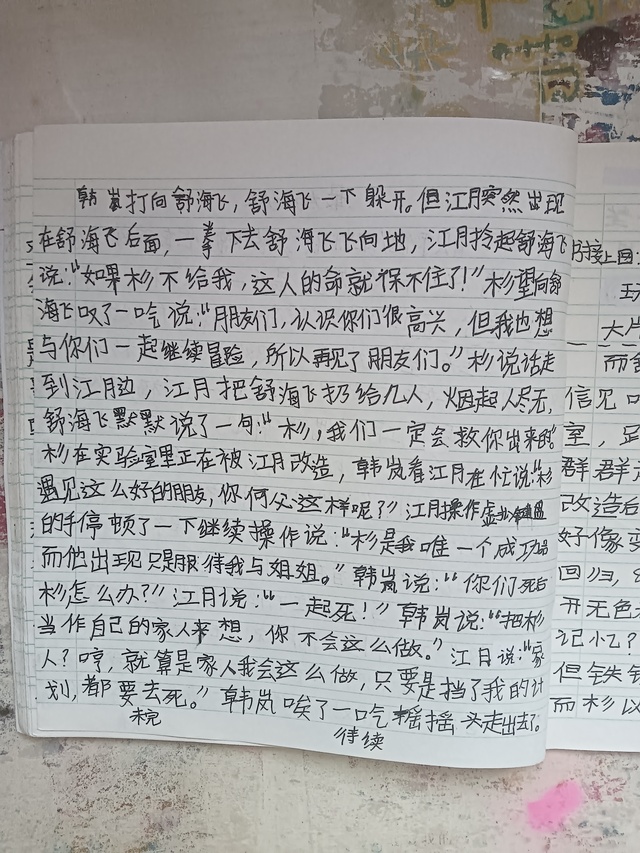 韩岚打向舒海飞，舒海飞一下躲开。但江月突然出现
在舒海飞后面，一拳下去舒海飞飞向地，江月拎起舒海飞
说：“如果杉不给我，这人的命就保不住了！”杉望向舒
海飞叹了一吃说：“朋友们，认识你们很高兴，但我也想
与你们一起继续冒险，所以再见了朋友们。”杉说话走
到江月边，江月把舒海飞扔给几人，烟起人尽无，
舒海飞默默说了一句：“杉，我们一定会救你出来的。”
杉在实验室里正在被江月改造，韩岚看江月在忙说：“杉
遇见这么好的朋友，你何必这样呢？”江月操作虚拟键盘
的手停顿了一下继续操作说：“杉是我唯一个成功品
而他出现只是服待我与姐姐。”韩岚说：“你们死后
杉怎么办？”江月说：“一起死！”韩岚说：“把杉
当作自己的家人来想，你不会这么做。”江月说：“家
人？哼，就算是家人我会这么做，只要是挡了我的计
划，都要去死。”韩岚唉了一吃摇摇头走出去了。
未完
待续
接上回：
大片
而舍
信见
室，足
群群
改造后
好像
回归，
开无色
记忆？
但铁铁
而杉以